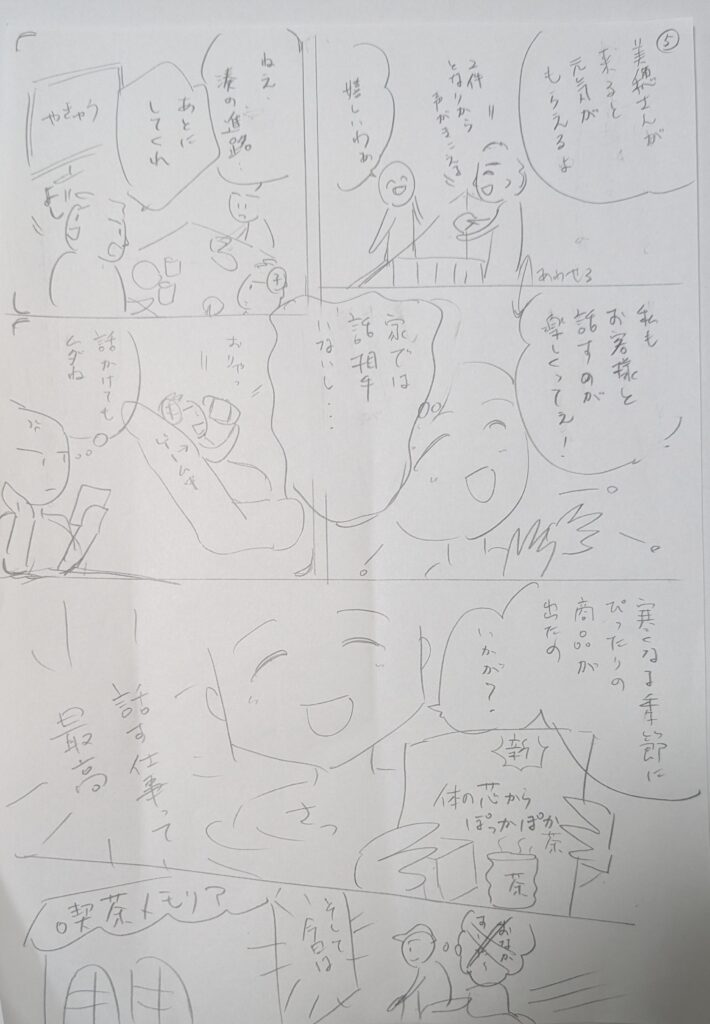 ⑤
美穂さんが
来ると
元気が
もらえるよ
2件
となりから
声がきこえる
嬉しいわぁ
ねえ、
湊の進路…
あとに
してくれ
やきゅう
よし
あわせる
私も
お客様と
話すのが
楽しくってえ!
家では
話相手
いないし…
おりゃっ
ゲーム
話かけても
ムダね
寒くなる季節に
ぴったりの
商品が
出たの
いかが?
新
体の芯から
ぽっかぽか
茶
茶
さっ
話す仕事って
最高
おなか
すいた〜
そして
今日は
喫茶メモリア